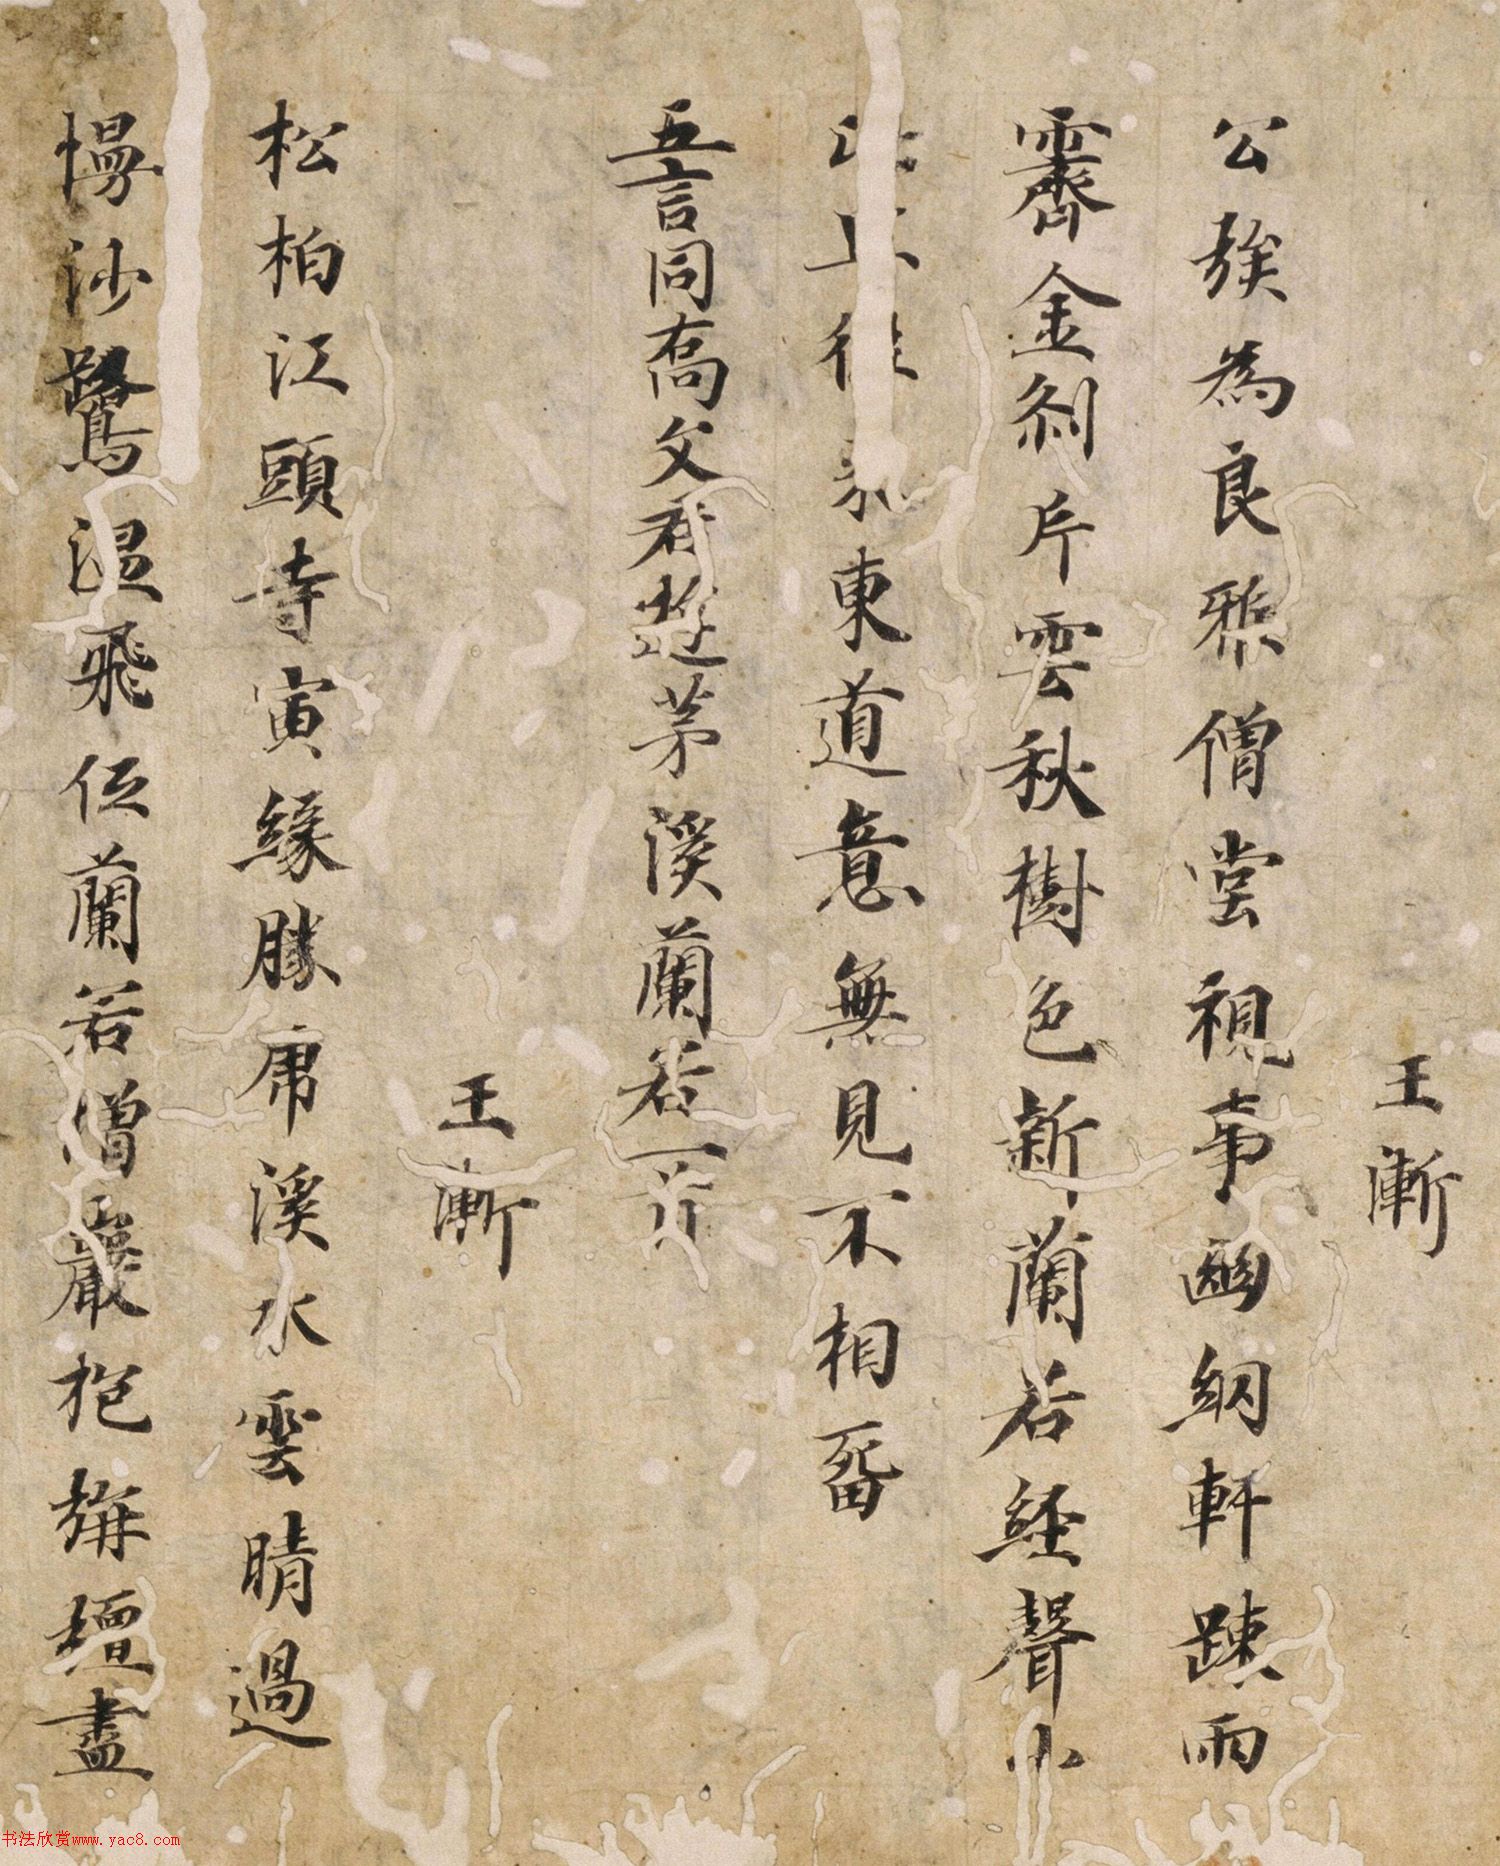 王漸
公族為良雅僧甞視事幽網軒踈雨
霽金剎片雲秋樹色新蘭若經聲小
東道意無見不相畱
五言同喬父遊茅溪蘭若一首
王漸
松柏江頭寺寅緣勝席溪水雲晴過
慢沙鷺濕飛伍蘭若僧巖抱旃檀盡
书法欣赏www.yac8.com